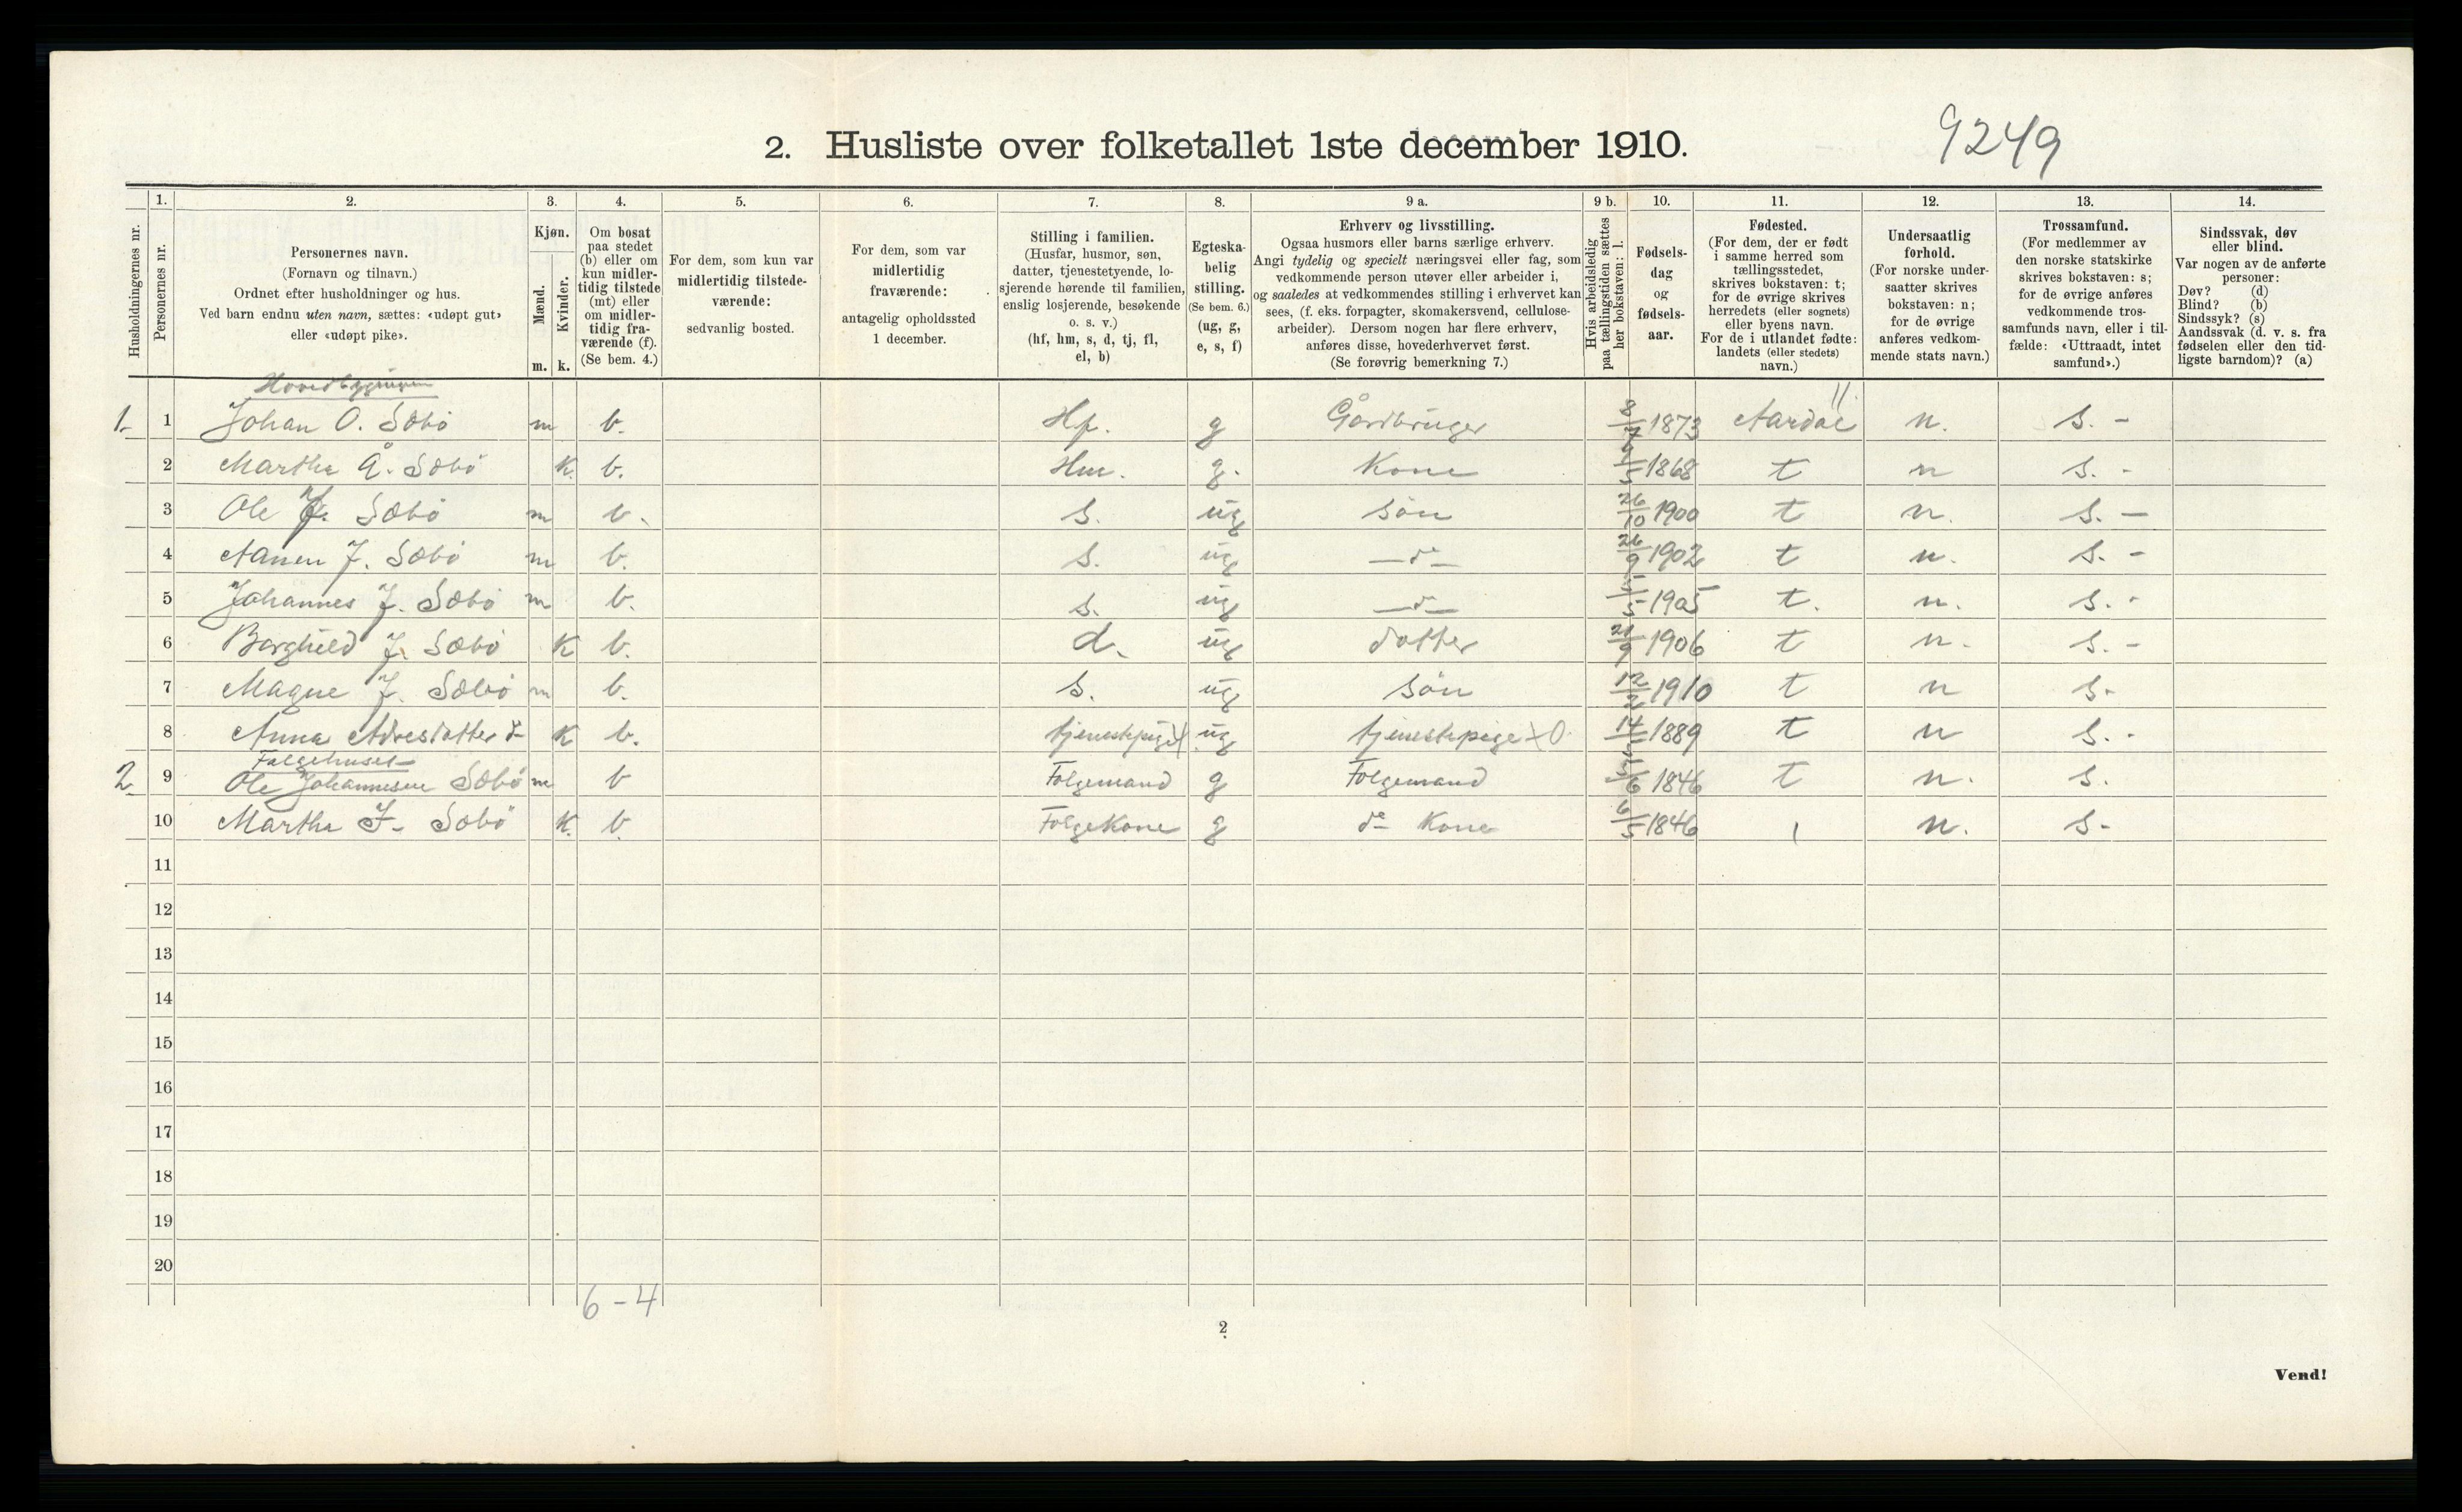 9249
2. Husliste over folketallet 1ste december 1910.
1. 2. 3. 4. 5. 6. 7. 8. 9 a. 9 b. 10. 11. 12. 13. 14.
Husholdningernes nr.
Personernes nr.
Personernes navn.
(Fornavn og tilnavn.)
Ordnet efter husholdninger og hus.
Ved barn endnu uten navn, sættes: «udøpt gut»
eller «udøpt pike».
Kjøn.
Mænd.
Kvinder.
m. k.
Om bosat
paa stedet
(b) eller om
kun midler-
tidig tilstede
(mt) eller
om midler-
tidig fra-
værende (f).
(Se bem. 4.)
For dem, som kun var
midlertidig tilstede-
værende:
sedvanlig bosted.
For dem, som var
midlertidig
fraværende:
antagelig opholdssted
1 december.
Stilling i familien.
(Husfar, husmor, søn,
datter, tjenestetyende, lo-
sjerende hørende til familien,
enslig losjerende, besøkende
o. s. v.)
(hf, hm, s, d, tj, fl,
el, b)
Egteska-
belig
stilling.
(Se bem. 6.)
(ug, g,
e, s, f)
Erhverv og livsstilling.
Ogsaa husmors eller barns særlige erhverv.
Angi tydelig og specielt næringsvei eller fag, som
vedkommende person utøver eller arbeider i,
og saaledes at vedkommendes stilling i erhvervet kan
sees, (f. eks. forpagter, skomakersvend, cellulose-
arbeider). Dersom nogen har flere erhverv,
anføres disse, hovederhvervet først.
(Se forøvrig bemerkning 7.)
Hvis arbeidsledig
paa tællingstiden sættes
her bokstaven: l.
Fødsels-
dag
og
fødsels-
aar.
Fødested.
(For dem, der er født
i samme herred som
tællingsstedet,
skrives bokstaven: t;
for de øvrige skrives
herredets (eller sognets)
eller byens navn.
For de i utlandet fødte:
landets (eller stedets)
navn.)
Undersaatlig
forhold.
(For norske under-
saatter skrives
bokstaven: n;
for de øvrige
anføres vedkom-
mende stats navn.)
Trossamfund.
(For medlemmer av
den norske statskirke
skrives bokstaven: s;
for de øvrige anføres
vedkommende tros-
samfunds navn, eller i til-
fælde: «Uttraadt, intet
samfund».)
Sindssvak, døv
eller blind.
Var nogen av de anførte
personer:
Døv? (d)
Blind? (b)
Sindssyk? (s)
Aandssvak (d. v. s. fra
fødselen eller den tid-
ligste barndom)? (a)
1. 1 Johan O. Søbø m b. Hf. g Gårdbruger 8/7 1873 Aardal n. s. -
2 Martha Å. Søbø K b. Hm. g. Kone 1868 t n s. -
3 Ole J. Søbø m b. s. ug søn 26/10 1900 t n. s. -
4 Aanen J. Søbø m b. s. ug - do - 26/9 1902 t n. s. -
5 Johannes J. Søbø m b. s. ug - do - 1905 t. n. s. -
6 Borghild J. Søbø K b. d. ug dotter 21/9 1906 t n. s. -
7 Magne J. Søbø m b. s. ug søn 12/2 1910 t n s-
8 Anna K b. tjenestepige ug tjenestepige 1889 t n s. -
Følgehuset
2. 9 Ole Johannesen Søbø m b Følgemand g Følgemand 1846 t n. s.
10 Martha J. Søbø K. b. Følgekone g do Kone 6/5 1846 n. s-
11
12
13
14
15
16
17
18
19
20
6 - 4
2
Vend!